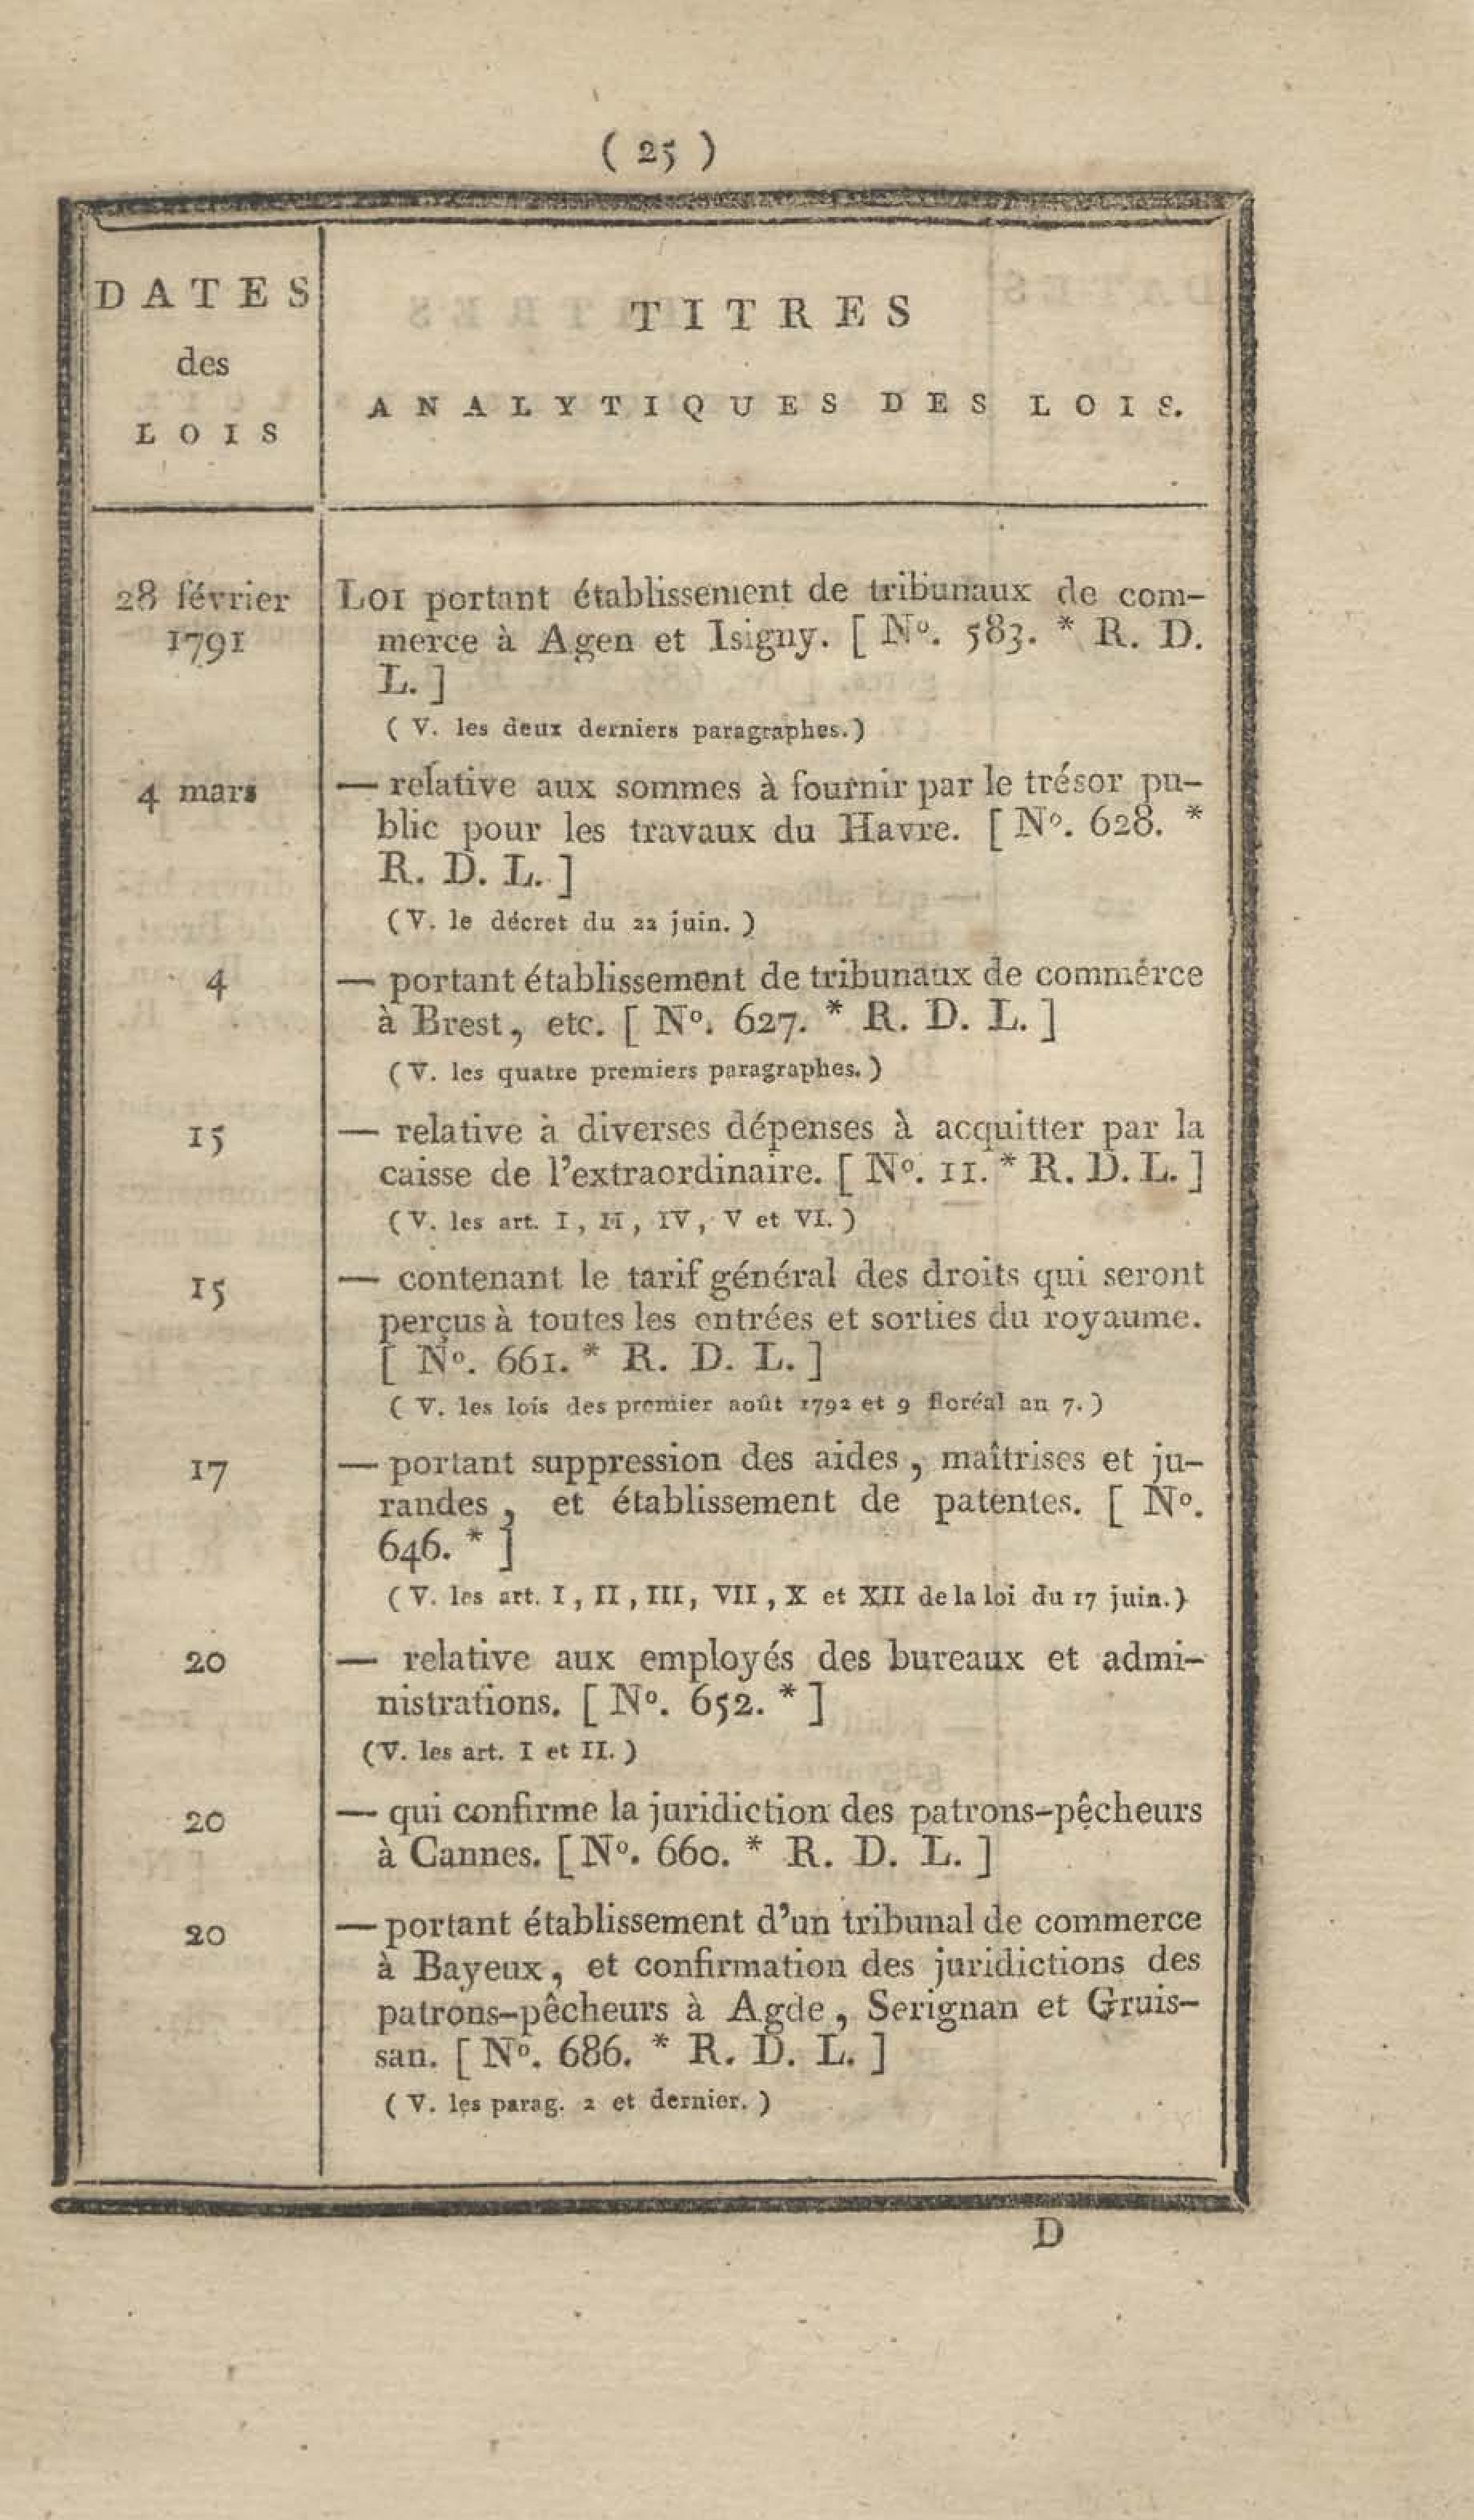 ( 25 )
DATES
des
LOIS
TITRES
ANALYTIQUES DES LOIS.
28 février
1791
LOI portant établissement de tribunaux de com-
merce à Agen et Isigny. [ Nº. 583. * R. D.
L. ]
( V. les deux derniers paragraphes.)
4 mars
— relative aux sommes à fournir par le trésor pu-
blic pour les travaux du Havre. [ Nº. 628. *
R. D. L. ]
( V. le décret du 22 juin. )
4
— portant établissement de tribunaux de commerce
à Brest, etc. [ Nº. 627. * R. D. L. ]
( V. les quatre premiers paragraphes. )
15
— relative à diverses dépenses à acquitter par la
caisse de l'extraordinaire. [ Nº. 11. * R. D. L. ]
( V. les art. I, II, IV, V et VI. )
15
— contenant le tarif général des droits qui seront
perçus à toutes les entrées et sorties du royaume.
[ Nº. 661. * R. D. L. ]
( V. les lois des premier août 1792 et 9 floréal an 7. )
17
— portant suppression des aides, maîtrises et ju-
randes, et établissement de patentes. [ Nº.
646. * ]
( V. les art. I, II, III, VII, X et XII de la loi du 17 juin.)
20
— relative aux employés des bureaux et admi-
nistrations. [ Nº. 652. * ]
(V. les art. I et II. )
20
— qui confirme la juridiction des patrons-pêcheurs
à Cannes. [ Nº. 660. * R. D. L. ]
20
— portant établissement d'un tribunal de commerce
à Bayeux, et confirmation des juridictions des
patrons-pêcheurs à Agde, Serignan et Gruis-
san. [ Nº. 686. * R. D. L. ]
( V. les parag. 2 et dernier. )
D